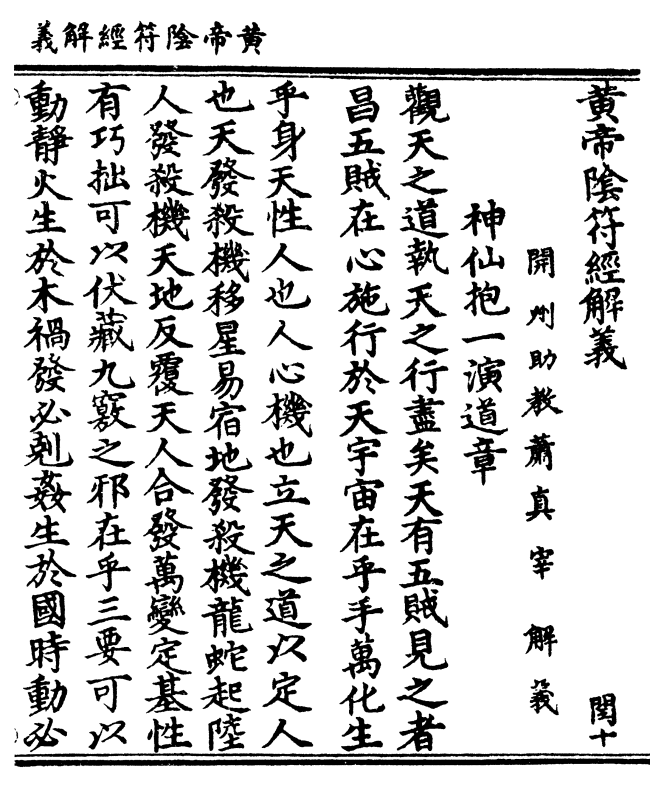 黄帝陰符經解義
黄帝陰符經解義
閏十
開州助教蕭真宰解義
神仙抱一演道章
觀天之道執天之行盡矣天有五賊見之者
昌五賊在心施行於天宇宙在乎手萬化生
乎身天性人也人心機也立天之道以定人
也天發殺機移星易宿地發殺機龍蛇起陸
人發殺機天地反覆天人合發萬變定基性
有巧拙可以伏藏九竅之邪在乎三要可以
動靜火生於木禍發必剋姦生於國時動必